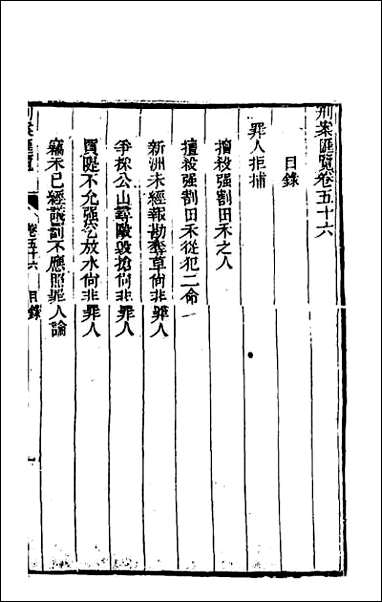 刑案匯覽卷五十六
目錄
罪人拒捕
擅殺强割田禾之人
擅殺强割田禾從犯二命
新洲未經報勘砍草尚非罪人
爭採公山蕁毆毀搶尚非罪人
買隄不允强乞放水尚非罪人
竊禾已經議罰不應照罪人論
刑案匯覽
卷五十六 目錄
一